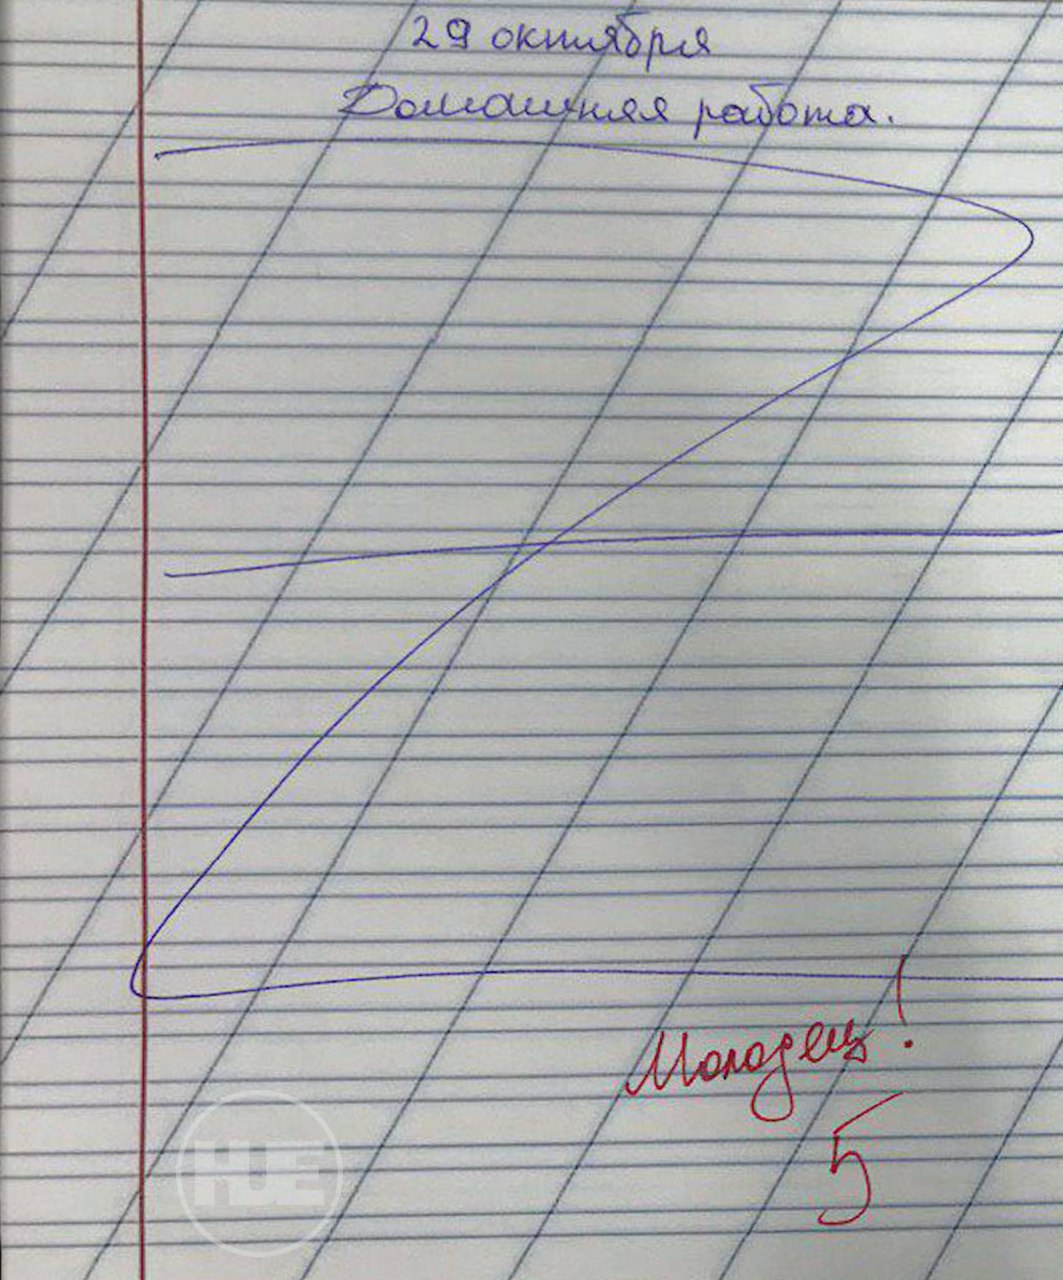 29 октября
Домашняя работа.
Z
Молодец!
5
HUE